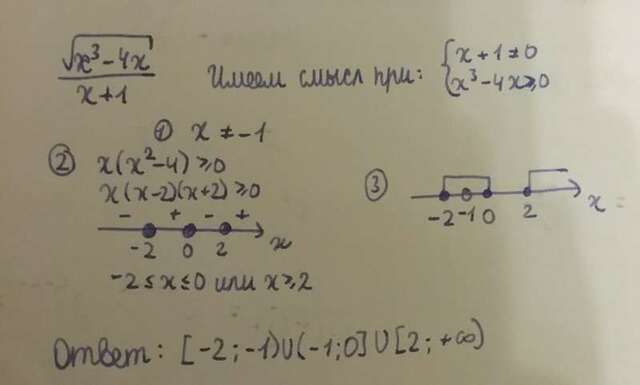 √(x³-4x)
x+1
Имеем смысл при: { x+1≠0
x³-4x≥0
① x ≠ -1
② x(x²-4)≥0
x(x-2)(x+2)≥0
- + - +
-2 0 2 x
-2≤x≤0 или x≥2
③ -2 -1 0 2 x
Ответ: [-2;-1)∪(-1;0]∪[2;+∞)